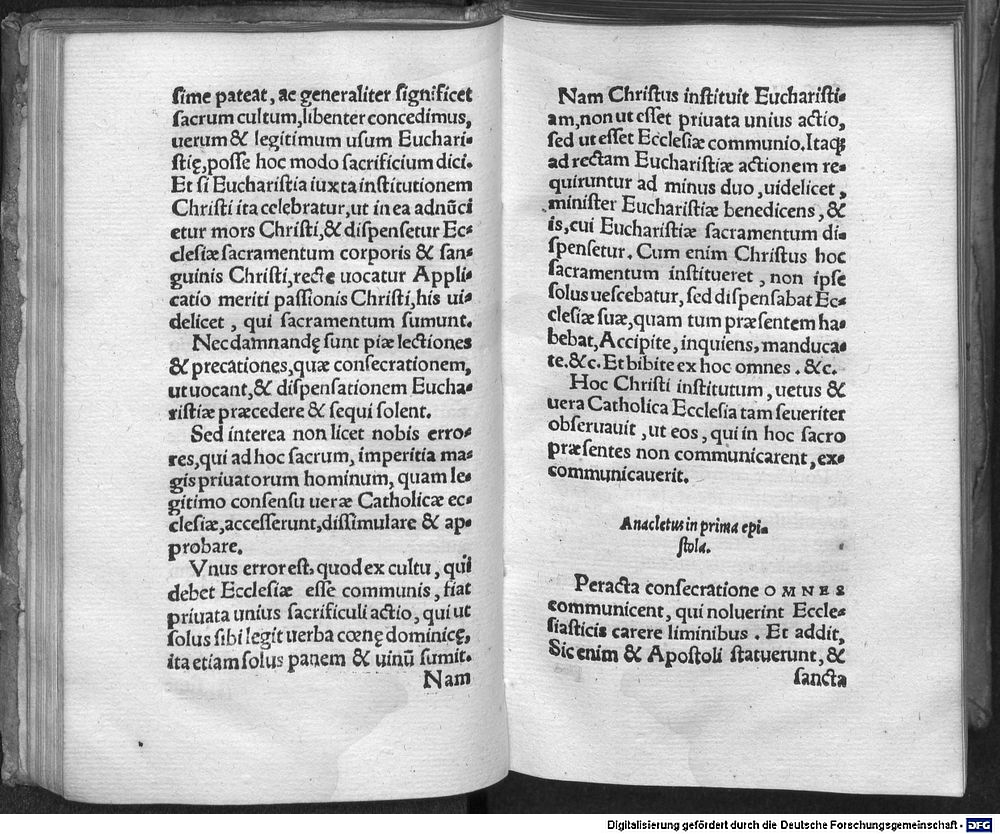 ſime pateat, ac generaliter ſignificet
ſacrum cultum, libenter concedimus,
uerum & legitimum uſum Euchari-
ſtię, poſſe hoc modo ſacrificium dici.
Et ſi Euchariſtia iuxta inſtitutionem
Chriſti ita celebratur, ut in ea adnũci
etur mors Chriſti, & diſpenſetur Ec-
cleſiæ ſacramentum corporis & ſan-
guinis Chriſti, recte uocatur Appli-
catio meriti paſſionis Chriſti, his ui-
delicet, qui ſacramentum ſumunt.
Nec damnandę ſunt piæ lectiones
& precationes, quæ conſecrationem,
ut uocant, & diſpenſationem Eucha-
riſtiæ præcedere & ſequi ſolent.
Sed interea non licet nobis erro-
res, qui ad hoc ſacrum, imperitia ma-
gis priuatorum hominum, quam le-
gitimo conſenſu ueræ Catholicæ ec-
cleſiæ, acceſſerunt, diſſimulare & ap-
probare.
Vnus error eſt, quod ex cultu, qui
debet Eccleſiæ eſſe communis, fiat
priuata unius ſacrificuli actio, qui ut
ſolus ſibi legit uerba cœnę dominicę,
ita etiam ſolus panem & uinũ ſumit.
Nam
Nam Chriſtus inſtituit Euchariſti-
am, non ut eſſet priuata unius actio,
ſed ut eſſet Eccleſiæ communio. Itaqꝫ
ad rectam Euchariſtiæ actionem re-
quiruntur ad minus duo, uidelicet,
miniſter Euchariſtiæ benedicens, &
is, cui Euchariſtiæ ſacramentum di-
ſpenſetur. Cum enim Chriſtus hoc
ſacramentum inſtitueret, non ipſe
ſolus ueſcebatur, ſed diſpenſabat Ec-
cleſiæ ſuæ, quam tum præſentem ha-
bebat, Accipite, inquiens, manduca-
te. &c. Et bibite ex hoc omnes. &c.
Hoc Chriſti inſtitutum, uetus &
uera Catholica Eccleſia tam ſeueriter
obſeruauit, ut eos, qui in hoc ſacro
præſentes non communicarent, ex-
communicauerit.
Anacletus in prima epi-
ſtola.
Peracta conſecratione OMNES
communicent, qui noluerint Eccle-
ſiaſticis carere liminibus. Et addit,
Sic enim & Apoſtoli ſtatuerunt, &
ſancta
Digitalisierung gefördert durch die Deutsche Forschungsgemeinschaft - DFG